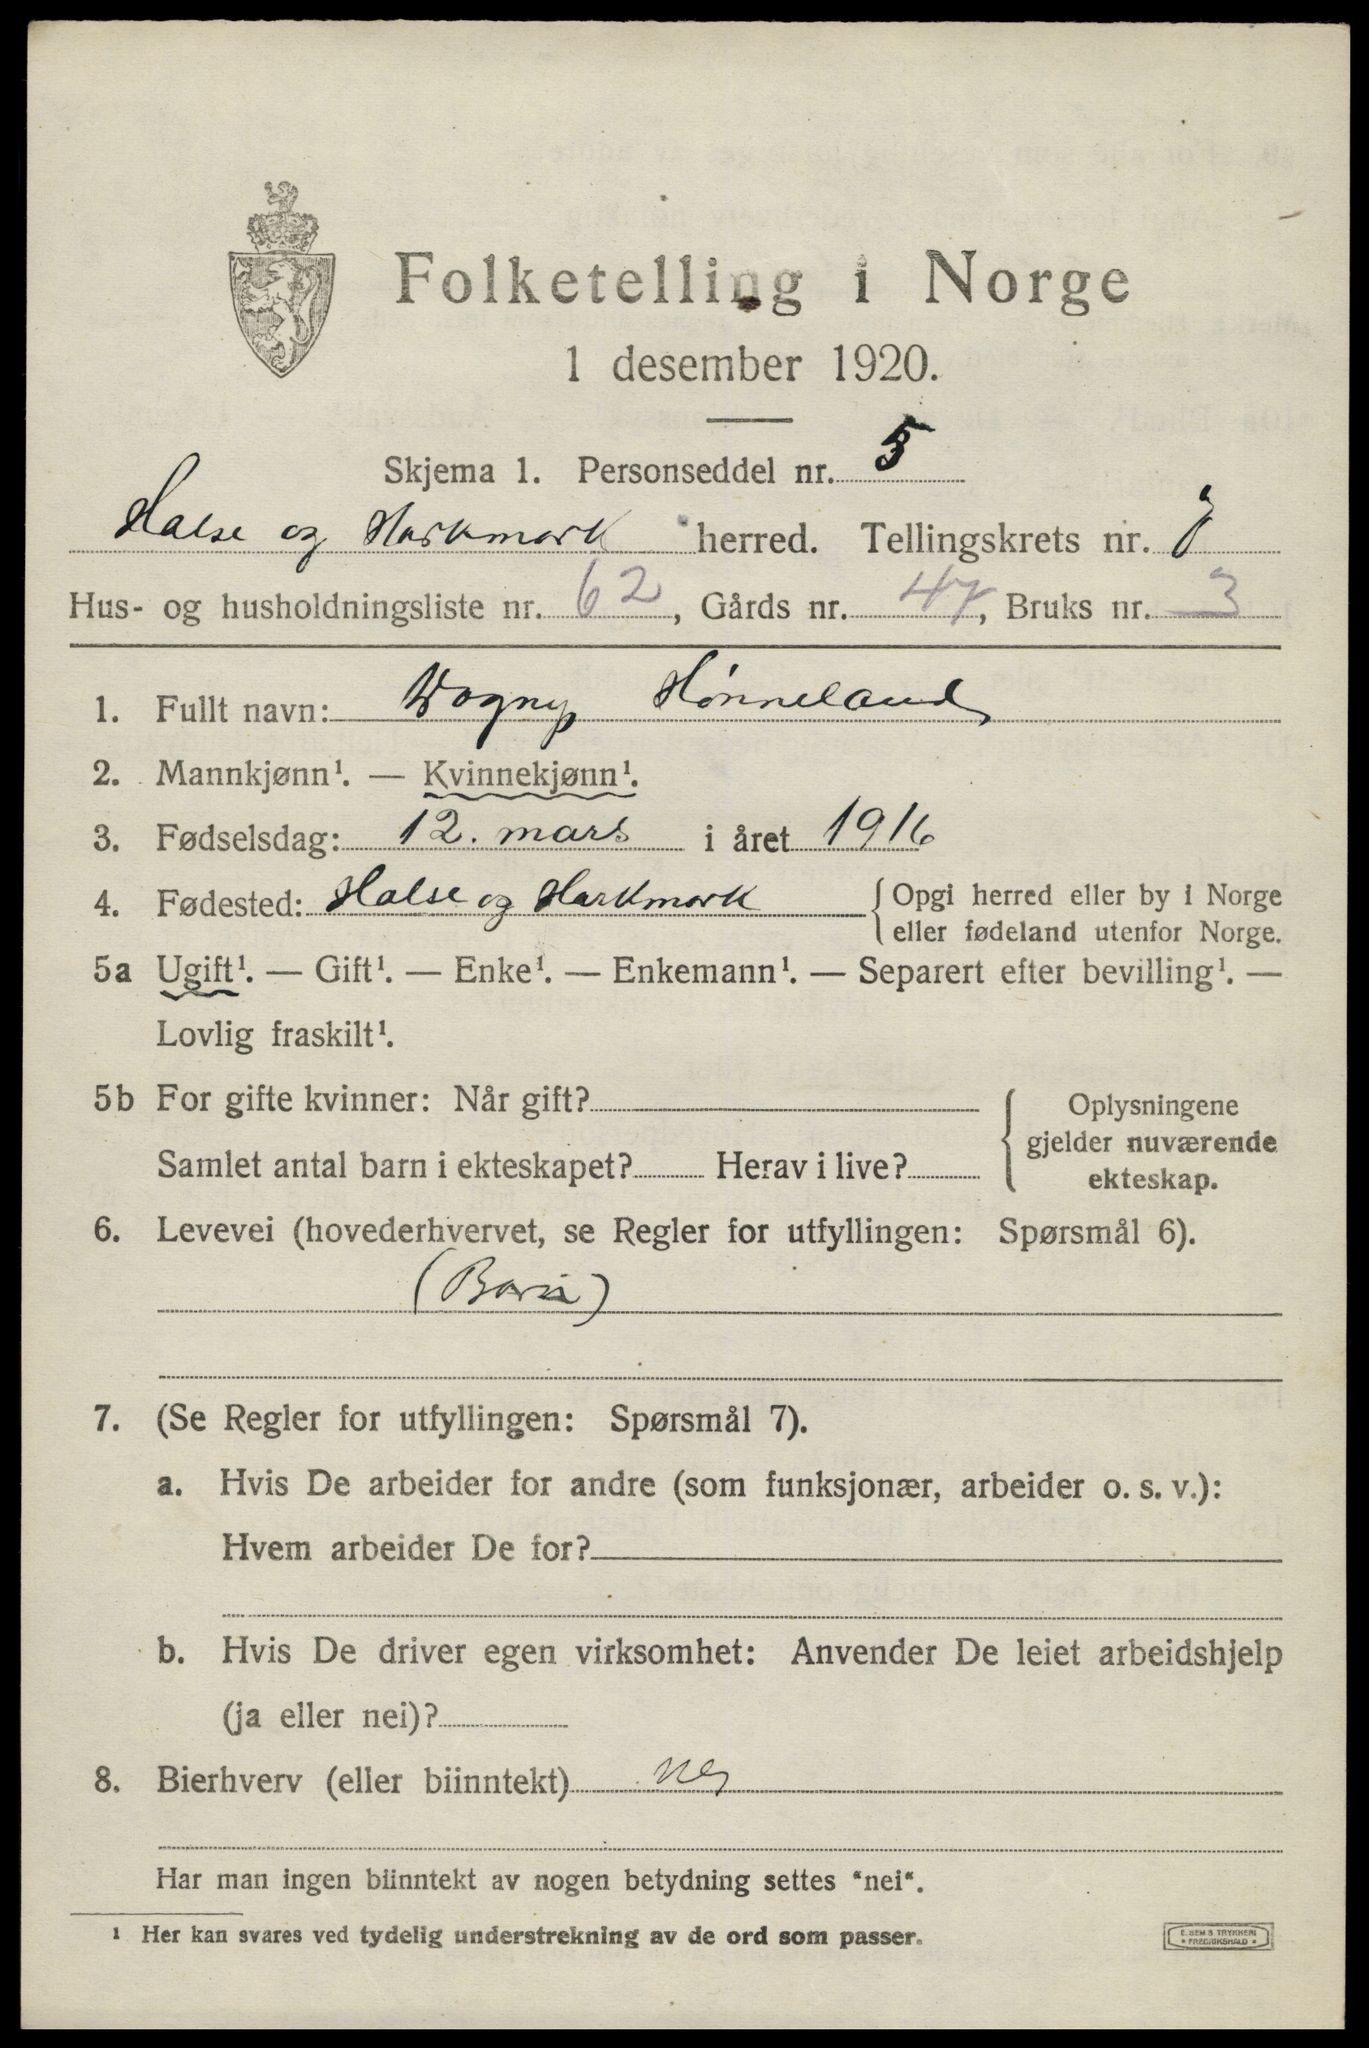 Folketelling i Norge
1 desember 1920.
Skjema 1. Personseddel nr. 5
Halse og Harkmark herred. Tellingskrets nr. 7
Hus- og husholdningsliste nr. 62, Gårds nr. 47, Bruks nr. 3
1. Fullt navn: Vogny Hønneland
2. Mannkjønn¹. — Kvinnekjønn¹.
3. Fødselsdag: 12. mars i året 1916
4. Fødested: Halse og Harkmark { Opgi herred eller by i Norge
eller fødeland utenfor Norge.
5a Ugift¹. — Gift¹. — Enke¹. — Enkemann¹. — Separert efter bevilling¹. —
Lovlig fraskilt¹.
5b For gifte kvinner: Når gift? { Oplysningene
gjelder nuværende
Samlet antal barn i ekteskapet? Herav i live? ekteskap.
6. Levevei (hovederhvervet, se Regler for utfyllingen: Spørsmål 6).
(Barn)
7. (Se Regler for utfyllingen: Spørsmål 7).
a. Hvis De arbeider for andre (som funksjonær, arbeider o. s. v.):
Hvem arbeider De for?
b. Hvis De driver egen virksomhet: Anvender De leiet arbeidshjelp
(ja eller nei)?
8. Bierhverv (eller biinntekt) nei
Har man ingen biinntekt av nogen betydning settes "nei".
¹ Her kan svares ved tydelig understrekning av de ord som passer.
E. SEM'S TRYKKERI
* FREDRIKSHALD *